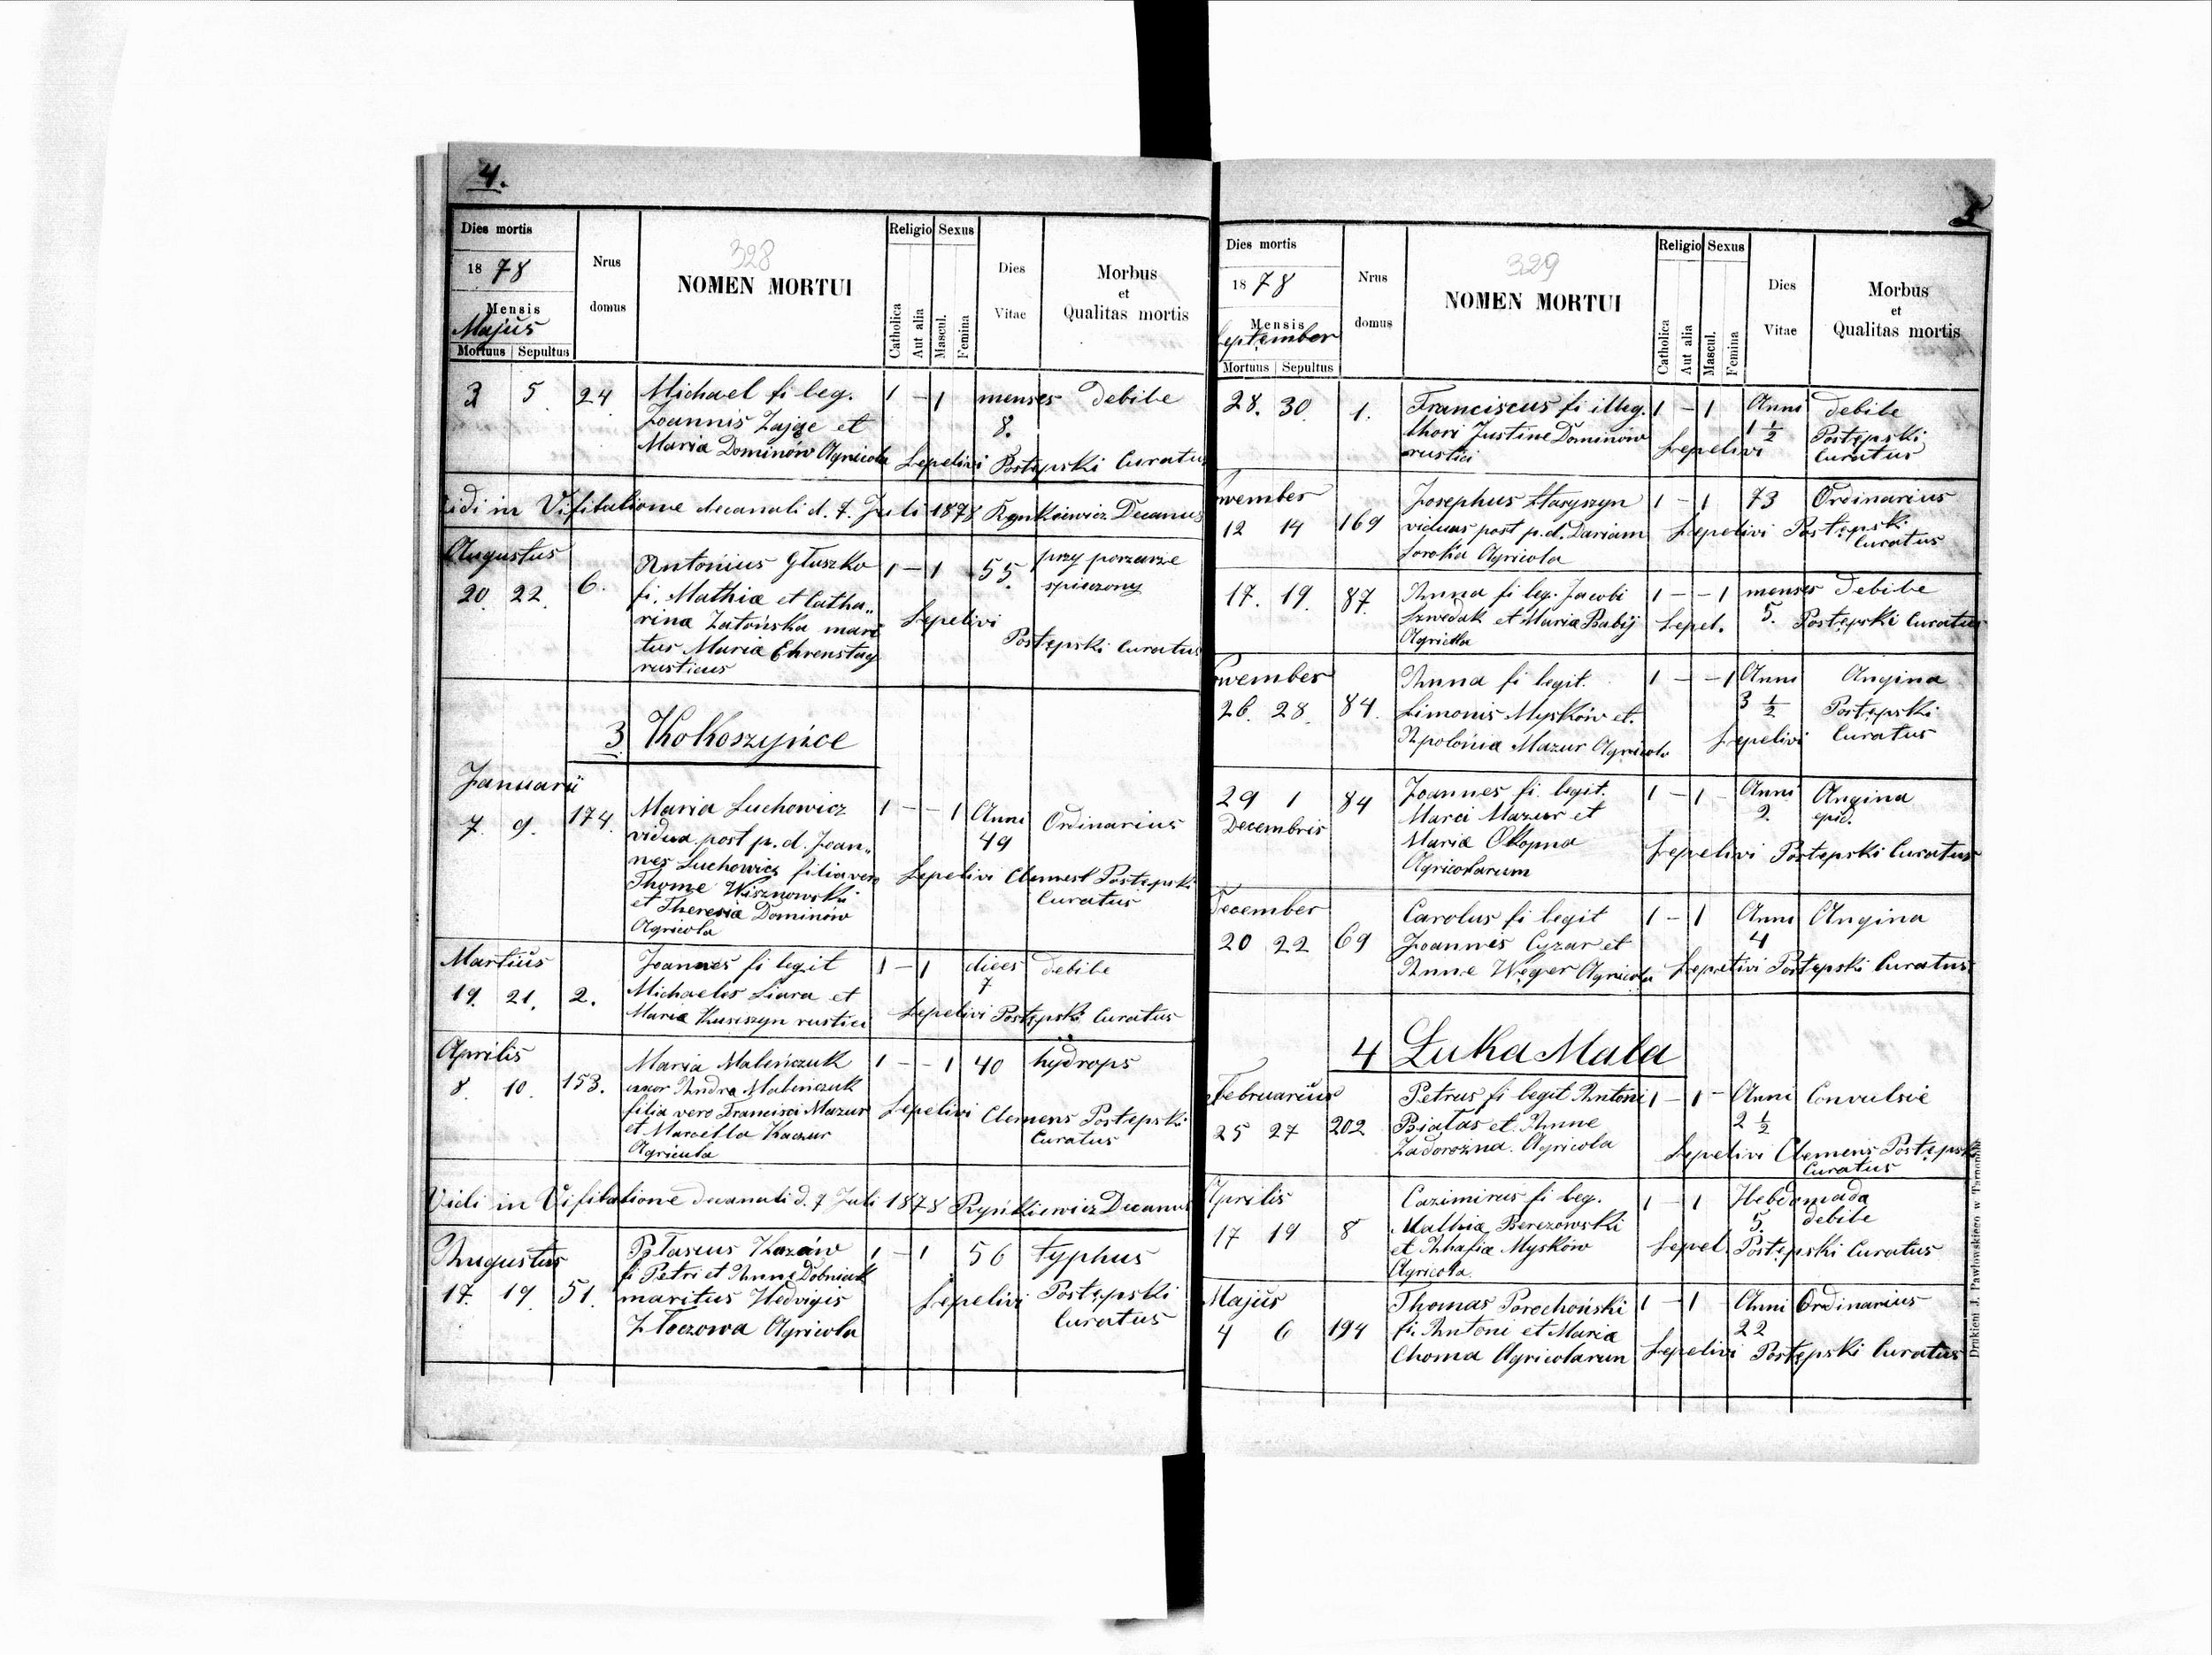 4.
Dies mortis
1878
Mensis
Majus
Mortuus | Sepultus
Nrus domus
328
NOMEN MORTUI
Religio Sexus
Catholica
Aut alia
Mascul.
Femina
Dies Vitae
Morbus
et
Qualitas mortis
3 5. 24 Michael fi leg. 1 - 1 menses debile
Joannis Zając et 8.
Maria Dominów Agricola Sepelivi Postępski Curatus
Vidi in Visitatione decanali d. 7. Juli 1878 Rynkiewicz Decanus
Augustus
20. 22. 6. Antonius Głuszko 1 - 1 55. przy porzarze
fi. Mathia et Catha„ spieczony
rina Zatońska mari Sepelivi
tus Maria Ehrenstag Postępski Curatus
rusticus
3 Kokoszyńce
Januarii
7. 9. 174. Maria Suchowicz 1 - - 1 Anni Ordinarius
vidua post p. d. Joan„ 49
nes Suchowicz filia vero Sepelivi Clemest Postępski
Thome Wisznowski Curatus
et Theresia Dominów
Agricola
Martius
19. 21. 2. Joannes fi legit 1 - 1 dies debile
Michaeles Siara et 7
Maria Kusiszyn rustici Sepelivi Postępski Curatus
Aprilis
8. 10. 153. Maria Maleńczuk 1 - - 1 40 hydrops
uxor Andra Maleńczuk
filia vero Francisci Mazur Sepelivi Clemens Postępski
et Marcella Kaczur Curatus
Agricola
Vidi in Visitatione decanali d. 7 Juli 1878 Rynkiewicz Decanus
Augustus
17. 19. 51. Ptasius Kozów 1 - 1 56 typhus
fi Petri et Anne Dobniak
maritus Hedvigis Sepelivi Postępski
Złoczowa Agricola Curatus
5
Dies mortis
1878
Mensis
September
Mortuus | Sepultus
Nrus domus
329
NOMEN MORTUI
Religio Sexus
Catholica
Aut alia
Mascul.
Femina
Dies Vitae
Morbus
et
Qualitas mortis
28. 30. 1. Franciscus fi illeg. 1 - 1 Anni debile
thori Justine Dominów 1 1/2 Postępski
rustici Sepelivi Curatus
November
12 14 169 Josephus Haryszyn 1 - 1 73 Ordinarius
viduus post p. d. Dariam Sepelivi Postępski
Soroka Agricola Curatus
17. 19. 87. Anna fi leg. Jacobi 1 - - 1 menses debile
Szwedak et Maria Babij Sepel. 5. Postępski Curatus
Agricola
November
26. 28. 84. Anna fi legit. 1 - - 1 Anni Angina
Simonis Mysków et. 3 1/2 Postępski
Apolonia Mazur Agricola Sepelivi Curatus
29 1 84 Joannes fi. legit. 1 - 1 - Anni Angina
Decembris Marci Mazur et 2. epid.
Maria Okopna Sepelivi Postępski Curatus
Agricolarum
December
20 22 69 Carolus fi legit 1 - 1 Anni Angina
Joannis Cyzar et 4
Anne Węger Agricola Sepelivi Postępski Curatus
4 Łuka Mała
Februarius
25 27 202 Petrus fi legit Antoni 1 - 1 - Anni Convulsie
Białas et Anne 2 1/2
Zadorożna. Agricola Sepelivi Clemens Postępski
Curatus
Aprilis
17 19 8 Cazimirus fi leg. 1 - 1 Hebdomada
Mathia Berezowski 5. debile
et Ahafia Mysków Sepel. Postępski Curatus
Agricola.
Majus
4 6 194 Thomas Porochoński 1 - 1 - Anni Ordinarius
fi. Antoni et Maria 22
Choma Agricolarum Sepelivi Postępski Curatus
Drukiem J. Pawłowskiego w Tarnopolu